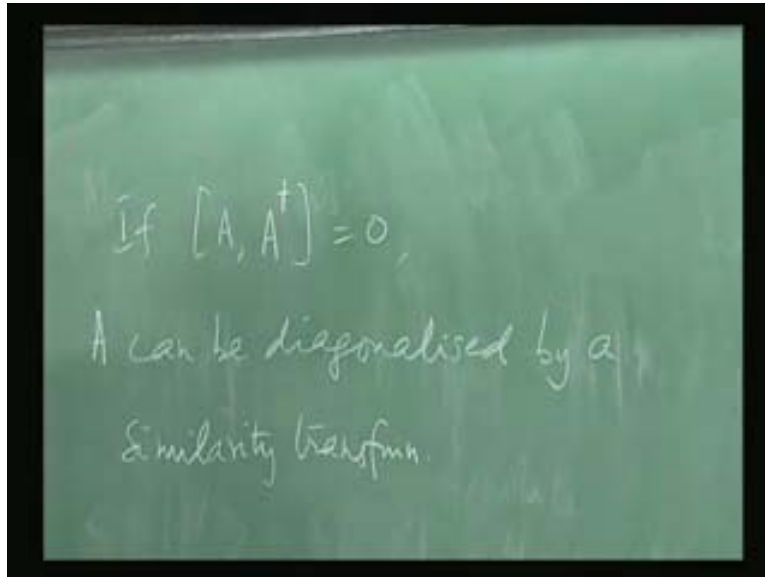 If [A, A†] = 0,
A can be diagonalised by a
Similarity transfmn.